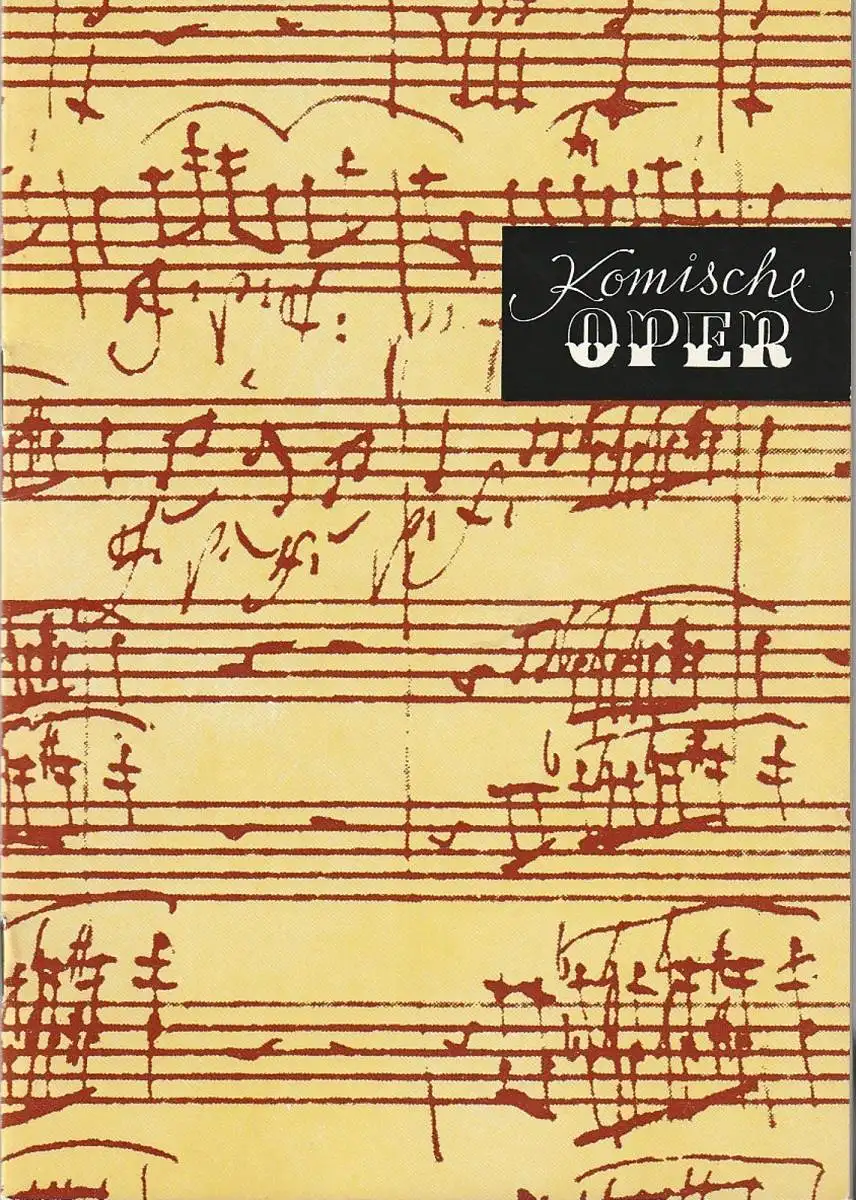 Komische
OPER